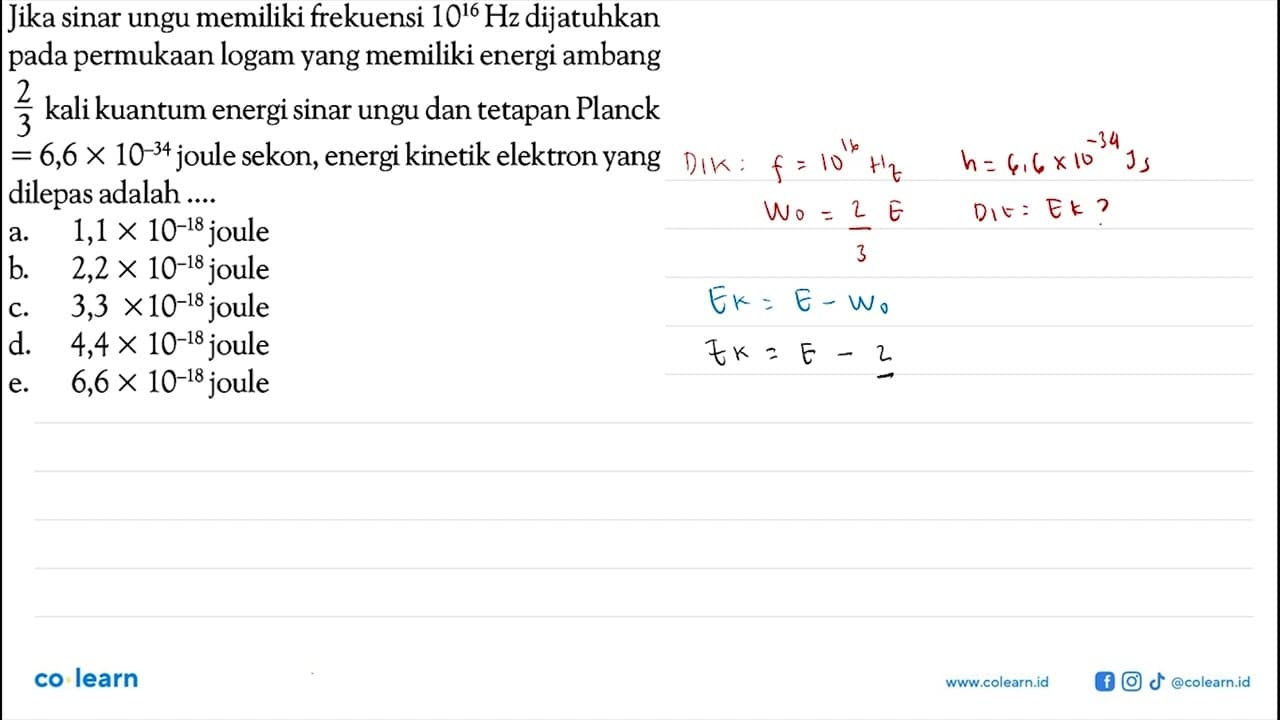 Jika sinar ungu memiliki frekuensi 10¹⁶ Hz dijatuhkan
pada permukaan logam yang memiliki energi ambang
2/3 kali kuantum energi sinar ungu dan tetapan Planck
= 6,6 × 10⁻³⁴ joule sekon, energi kinetik elektron yang
dilepas adalah ....
a. 1,1 × 10⁻¹⁸ joule
b. 2,2 × 10⁻¹⁸ joule
c. 3,3 × 10⁻¹⁸ joule
d. 4,4 × 10⁻¹⁸ joule
e. 6,6 × 10⁻¹⁸ joule
DIK : f = 10¹⁶ Hz h = 6,6 × 10⁻³⁴ Js
W₀ = 2/3 E Dit : Ek ?
Ek = E - W₀
Ek = E - 2
co learn
www.colearn.id @colearn.id